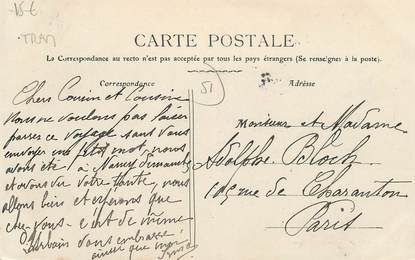 15 €
TRAM
CARTE POSTALE
La Correspondance au recto n'est pas acceptée par tous les pays étrangers (Se renseigner à la poste).
Correspondance
Adresse
51
Chers Cousin et Cousine
nous ne voulons pas laisser
passer ce voyage sans vous
envoyer un petit mot, nous
avons été à Nancy dimanche
et avons vu votre tante, nous
allons bien et espérons que
chez-vous c'est de même
Urbain vous embrasse
ainsi que moi
Monsieur et Madame
Adolphe Bloch
rue de Charenton
Paris